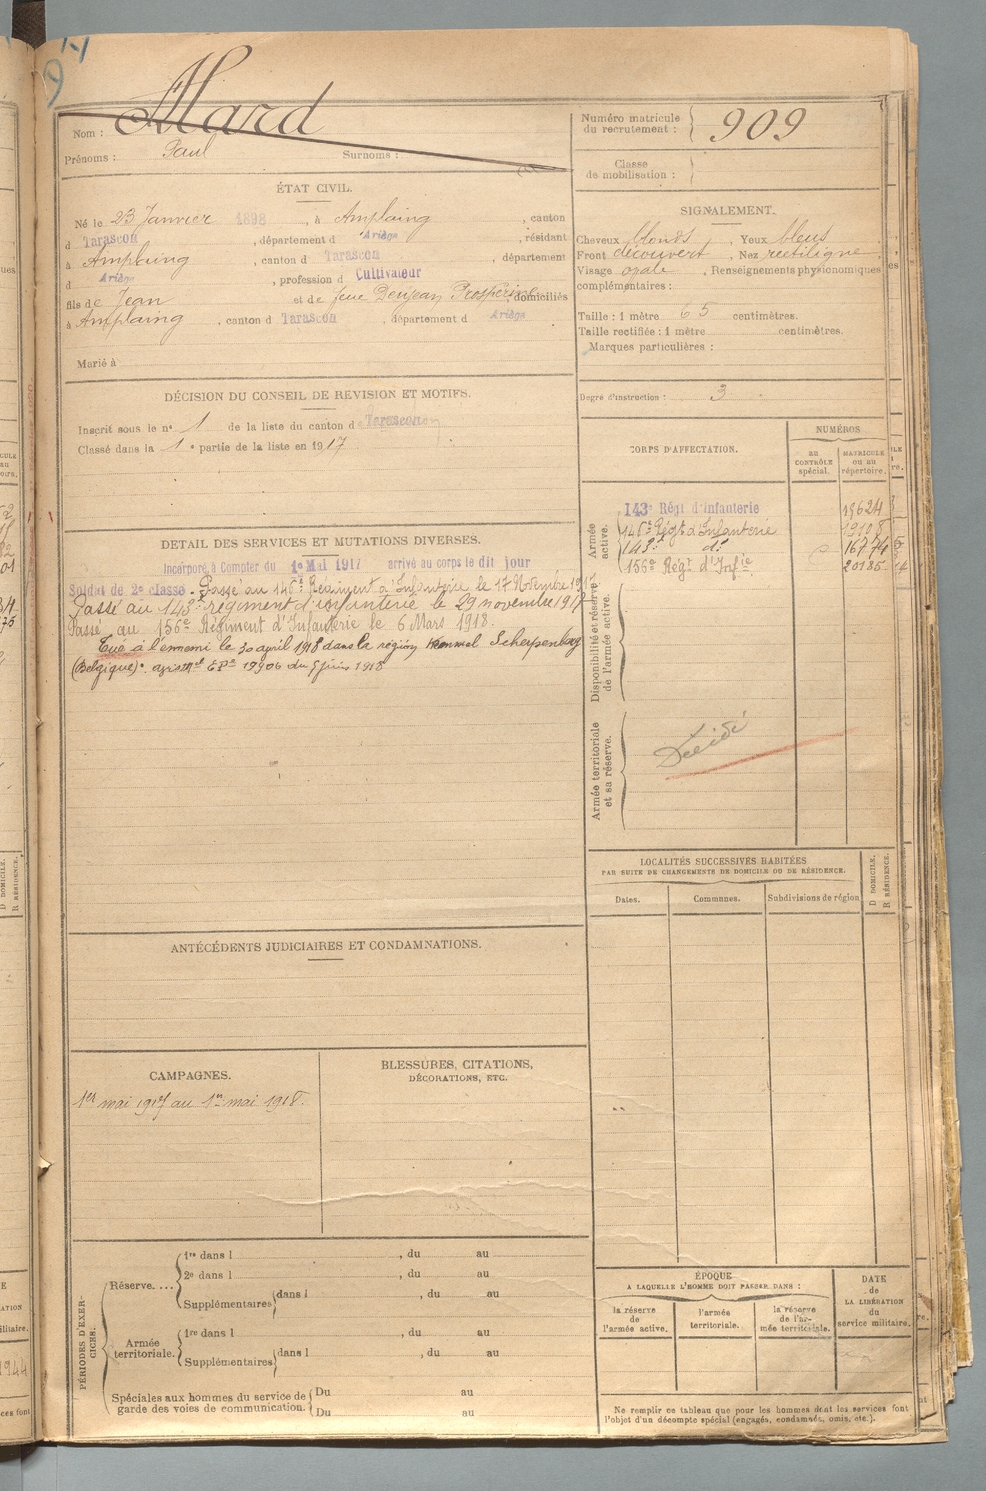 94
Nom : Allard
Prénoms : Paul Surnoms :
Numéro matricule du recrutement : 909
Classe de mobilisation :
ÉTAT CIVIL.
Né le 23 Janvier 1898, à Amplaing, canton
d Tarascon, département d Ariège, résidant
à Amplaing, canton d Tarascon, département
d Ariège, profession d Cultivateur
fils de Jean et de feue Deujean Prosperine, domiciliés
à Amplaing, canton d Tarascon, département d Ariège
Marié à
SIGNALEMENT.
Cheveux blonds, Yeux bleus
Front découvert, Nez rectiligne
Visage ovale, Renseignements physionomiques
complémentaires :
Taille : 1 mètre 65 centimètres.
Taille rectifiée : 1 mètre centimètres.
Marques particulières :
Degré d'instruction : 3
DÉCISION DU CONSEIL DE REVISION ET MOTIFS.
Inscrit sous le n° 1 de la liste du canton de Tarascon
Classé dans la 1e partie de la liste en 1917
CORPS D'AFFECTATION.
NUMÉROS
au CONTRÔLE spécial.
MATRICULE ou au répertoire.
Armée active.
143e Régt d'infanterie 19624
146e Régt d'Infanterie 19108
143e do 16774
156e Régt d'Infie 20185
Disponibilité et réserve de l'armée active.
Armée territoriale et sa réserve.
Décédé
DÉTAIL DES SERVICES ET MUTATIONS DIVERSES.
Incorporé à Compter du 1er Mai 1917 arrivé au corps le dit jour
Soldat de 2e classe. Passé au 146e Régiment d'Infanterie le 17 Novembre 1917
Passé au 143e régiment d'infanterie le 29 novembre 1917
Passé au 156e Régiment d'Infanterie le 6 Mars 1918.
Tué à l'ennemi le 30 avril 1918 dans la région Kemmel Scherpenberg
(Belgique). avis Mel E.P. 17906 du 5 juin 1918
LOCALITÉS SUCCESSIVES HABITÉES
PAR SUITE DE CHANGEMENTS DE DOMICILE OU DE RÉSIDENCE.
Dates. Communes. Subdivisions de région
D DOMICILE.
R RÉSIDENCE.
ANTÉCÉDENTS JUDICIAIRES ET CONDAMNATIONS.
CAMPAGNES.
1er mai 1917 au 1er mai 1918.
BLESSURES, CITATIONS,
DÉCORATIONS, ETC.
PÉRIODES D'EXERCICES.
Réserve....
1re dans l , du au
2e dans l , du au
Supplémentaires dans l , du au
Armée territoriale.
1re dans l , du au
Supplémentaires dans l , du au
Spéciales aux hommes du service de
garde des voies de communication.
Du au
Du au
ÉPOQUE
A LAQUELLE L'HOMME DOIT PASSER DANS :
la réserve de l'armée active.
l'armée territoriale.
la réserve de l'armée territoriale.
DATE de LA LIBÉRATION du service militaire.
Ne remplir ce tableau que pour les hommes dont les services font
l'objet d'un décompte spécial (engagés, condamnés, omis, etc.).